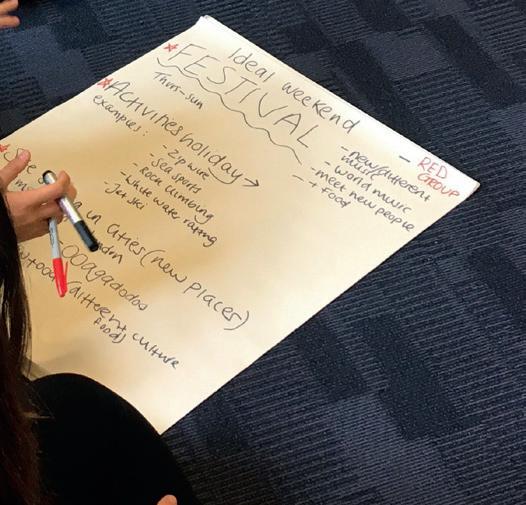 Ideal weekend
- RED
GROUP
FESTIVAL
Thurs-sun
- new/different
music
- world music
- meet new people
- + Food
Activities holiday →
examples:
- Zip wire
- Sea sports
- Rock climbing
- White water rafting
- Jet ski
in cities (new places)
(different culture
food)